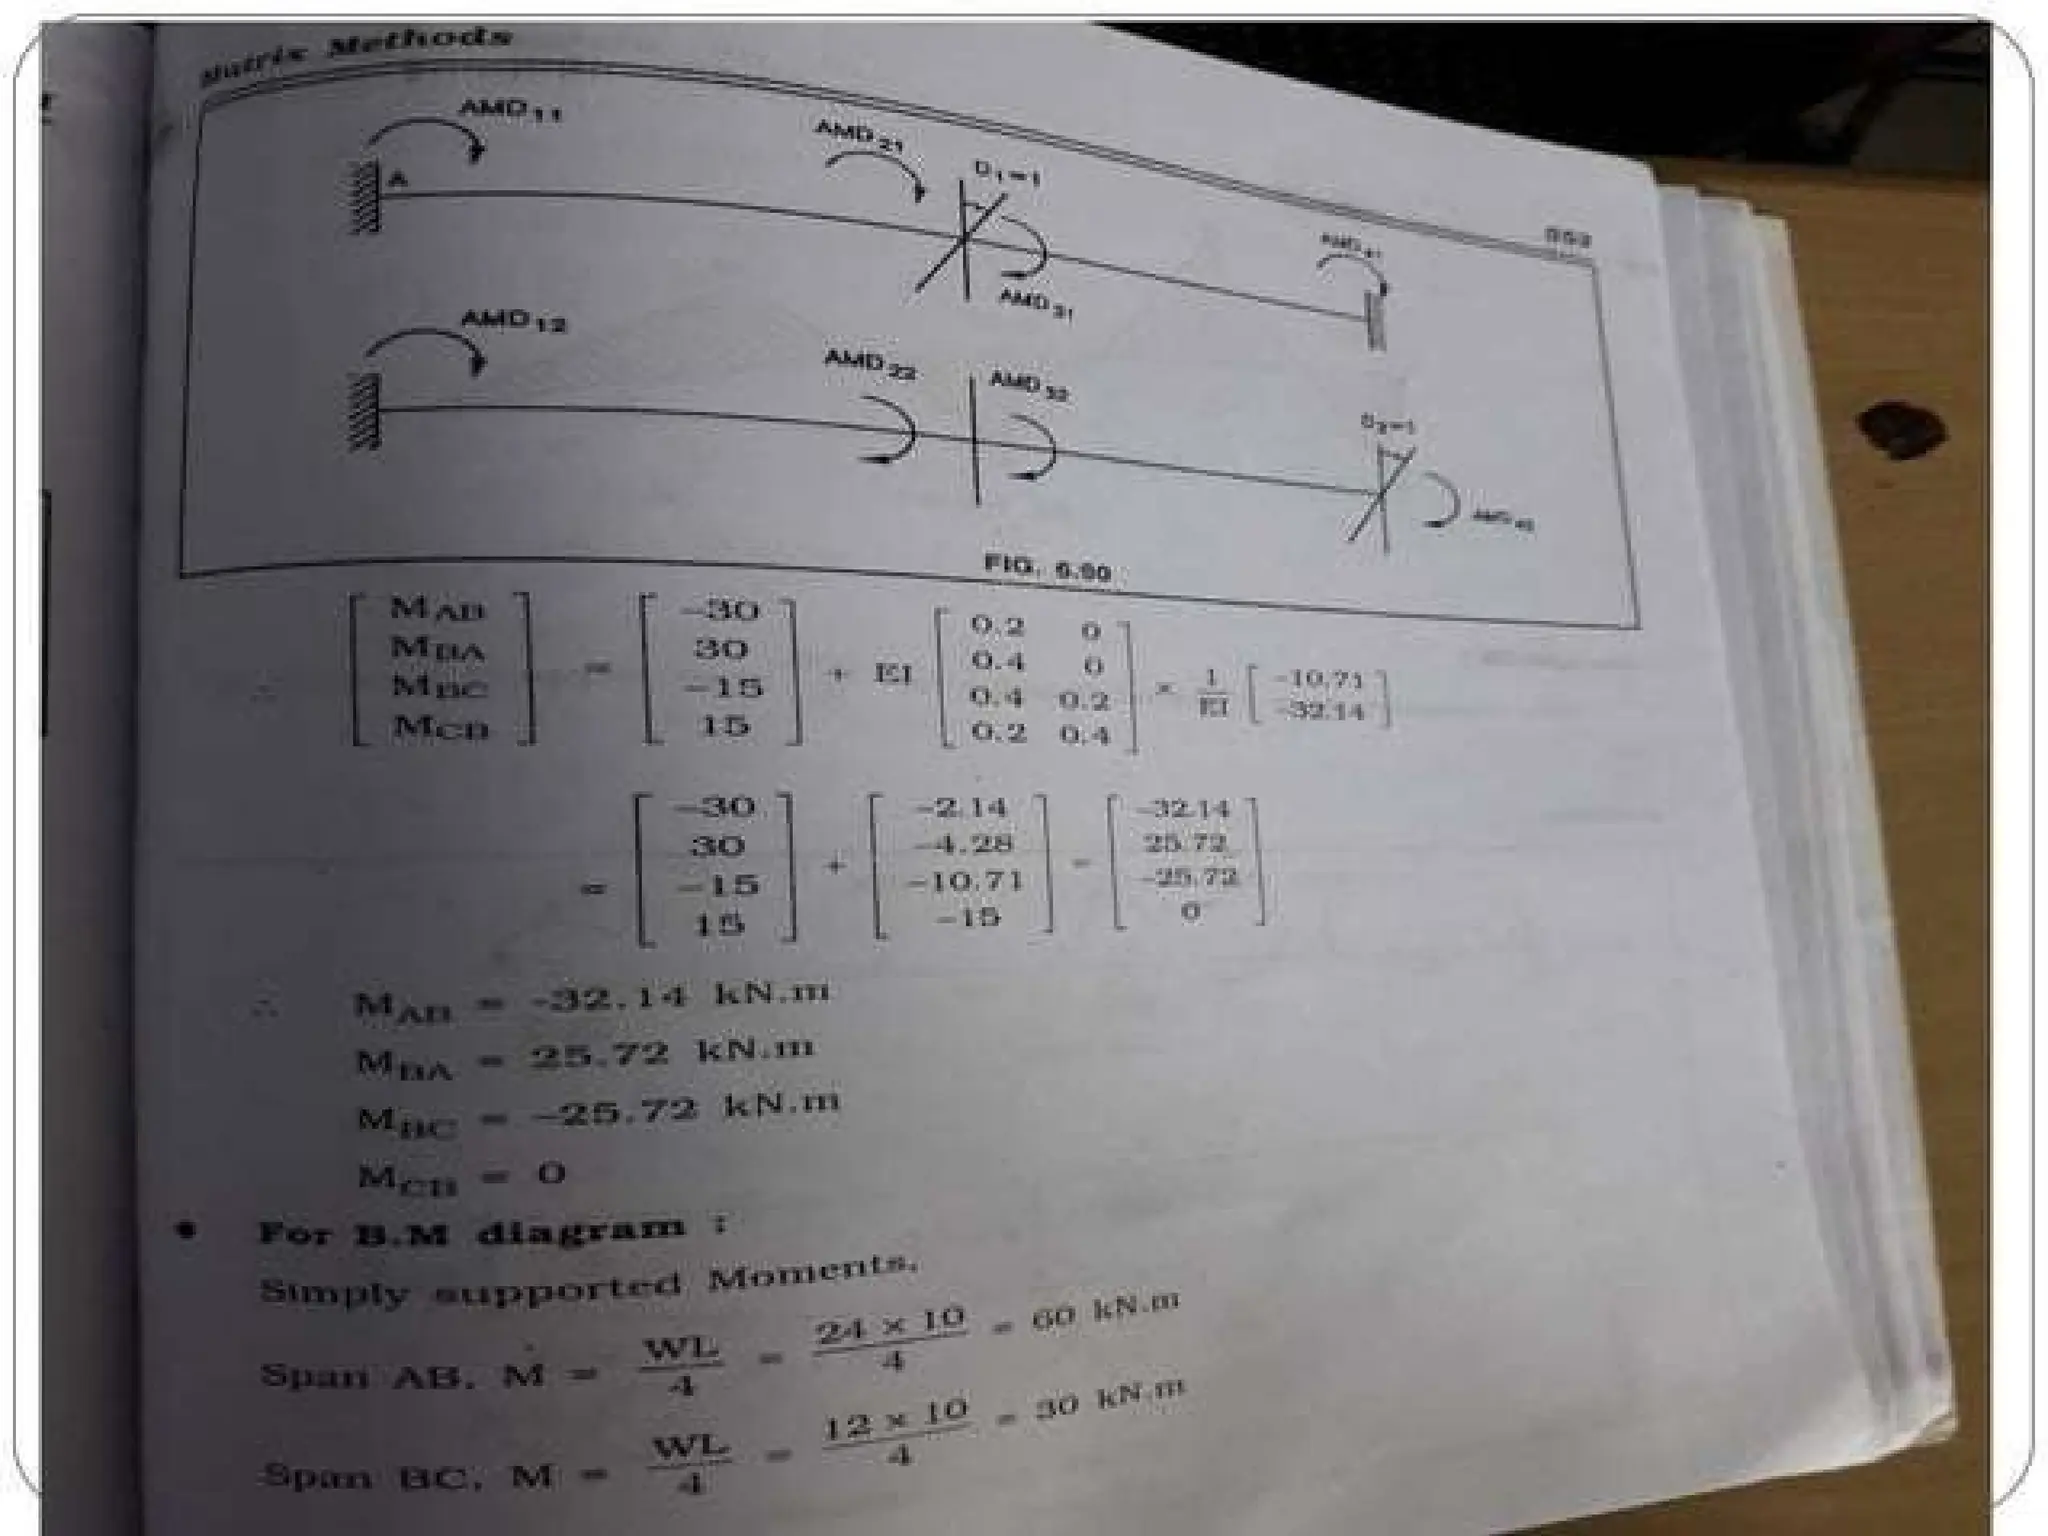 Matrix Methods
553
AMD11
AMD21
D1=1
A
AMD31
AMD41
AMD12
AMD22
AMD32
D2=1
AMD42
FIG. 6.90
∴ [MAB MBA MBC MCB] = [-30 30 -15 15] + EI [0.2 0 0.4 0 0.4 0.2 0.2 0.4] × 1/EI [-10.71 -32.14]
= [-30 30 -15 15] + [-2.14 -4.28 -10.71 -15] = [-32.14 25.72 -25.72 0]
∴ MAB = -32.14 kN.m
MBA = 25.72 kN.m
MBC = -25.72 kN.m
MCB = 0
• For B.M diagram :
Simply supported Moments,
Span AB, M = WL/4 = 24 × 10/4 = 60 kN.m
Span BC, M = WL/4 = 12 × 10/4 = 30 kN.m